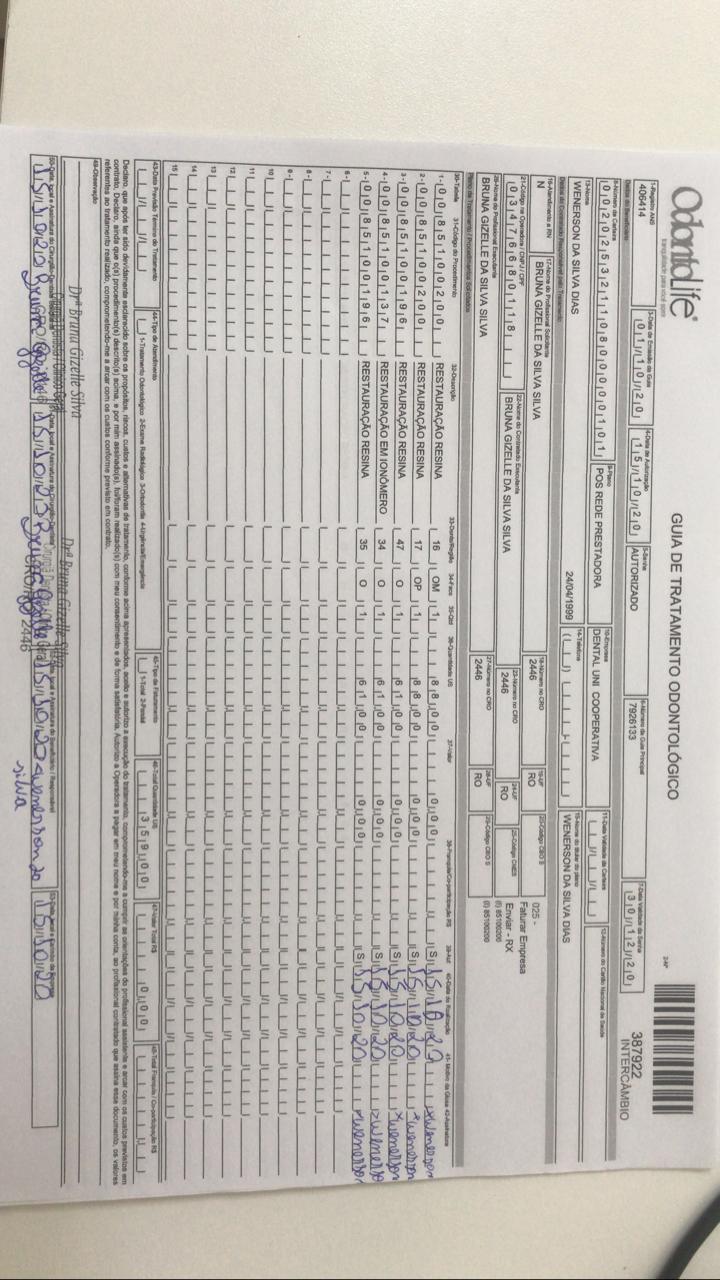 OdontoLife®
tranquilidade para você sorrir
GUIA DE TRATAMENTO ODONTOLÓGICO
2AP
387922
INTERCÂMBIO
1-Registro ANS
406414
3-Data de Emissão da Guia
01/10/20
4-Data de Autorização
15/10/20
5-Senha
AUTORIZADO
6-Número da Guia Principal
7926133
7-Data Validade da Senha
30/12/20
Dados do Beneficiário
8-Número da Carteira
00202532110800000101
9-Plano
POS REDE PRESTADORA
10-Empresa
DENTAL UNI COOPERATIVA
11-Data Validade da Carteira
12-Número do Cartão Nacional de Saúde
13-Nome
WENERSON DA SILVA DIAS
24/04/1999
14-Telefone
15-Nome do titular do plano
WENERSON DA SILVA DIAS
Dados do Contratado Responsável pelo Tratamento
16-Atendimento a RN
N
17-Nome do Profissional Solicitante
BRUNA GIZELLE DA SILVA SILVA
18-Número no CRO
2446
19-UF
RO
20-Código CBO S
025 -
Faturar Empresa
Enviar - RX
(I) 85100200
(I) 85100200
21-Código na Operadora / CNPJ / CPF
03476680118
22-Nome do Contratado Executante
BRUNA GIZELLE DA SILVA SILVA
23-Número no CRO
2446
24-UF
RO
25-Código CNES
26-Nome do Profissional Executante
BRUNA GIZELLE DA SILVA SILVA
27-Número no CRO
2446
28-UF
RO
29-Código CBO S
Plano de Tratamento / Procedimentos Solicitados
30-Tabela 31-Código do Procedimento 32-Descrição 33-Dente/Região 34-Face 35-Qtd 36-Quantidade US 37-Valor 38-Franquia/Co-participação R$ 39-Aut 40-Data de Realização 41-Motivo da Glosa 42-Assinatura
1- 00 85100200 RESTAURAÇÃO RESINA 16 OM 1 88,00 0,00 S 15/10/20 x Wenerson
2- 00 85100200 RESTAURAÇÃO RESINA 17 OP 1 88,00 0,00 S 15/10/20 x Wenerson
3- 00 85100196 RESTAURAÇÃO RESINA 47 O 1 61,00 0,00 S 15/10/20 x Wenerson
4- 00 85100137 RESTAURAÇÃO EM IONÔMERO 34 O 1 61,00 0,00 S 15/10/20 x Wenerson
5- 00 85100196 RESTAURAÇÃO RESINA 35 O 1 61,00 0,00 S 15/10/20 x Wenerson
6-
7-
8-
9-
10
11
12
13
14
15
43-Data Prevista Término do Tratamento
44-Tipo de Atendimento
1-Tratamento Odontológico 2-Exame Radiológico 3-Ortodontia 4-Urgência/Emergência
45-Tipo de Faturamento
1-Total 2-Parcial
46-Total Quantidade US
359,00
47-Valor Total R$
0,00
48-Total Franquia / Co-participação R$
Declaro, que após ter sido devidamente esclarecido sobre os propósitos, riscos, custos e alternativas de tratamento, conforme acima apresentados, aceito e autorizo a execução do tratamento, comprometendo-me a cumprir as orientações do profissional assistente e arcar com os custos previstos em
contrato. Declaro, ainda que o(s) procedimento(s) descrito(s) acima, e por mim assinado(s), foi/foram realizado(s) com meu consentimento e de forma satisfatória. Autorizo a Operadora a pagar em meu nome e por minha conta, ao profissional contratado que assina esse documento, os valores
referentes ao tratamento realizado, comprometendo-me a arcar com os custos conforme previsto em contrato.
49-Observação
Drª Bruna Gizelle Silva
Drª Bruna Gizelle Silva
15/10/20 15/10/20 15/10/20 Wenerson da 15/10/20
2446
Silva